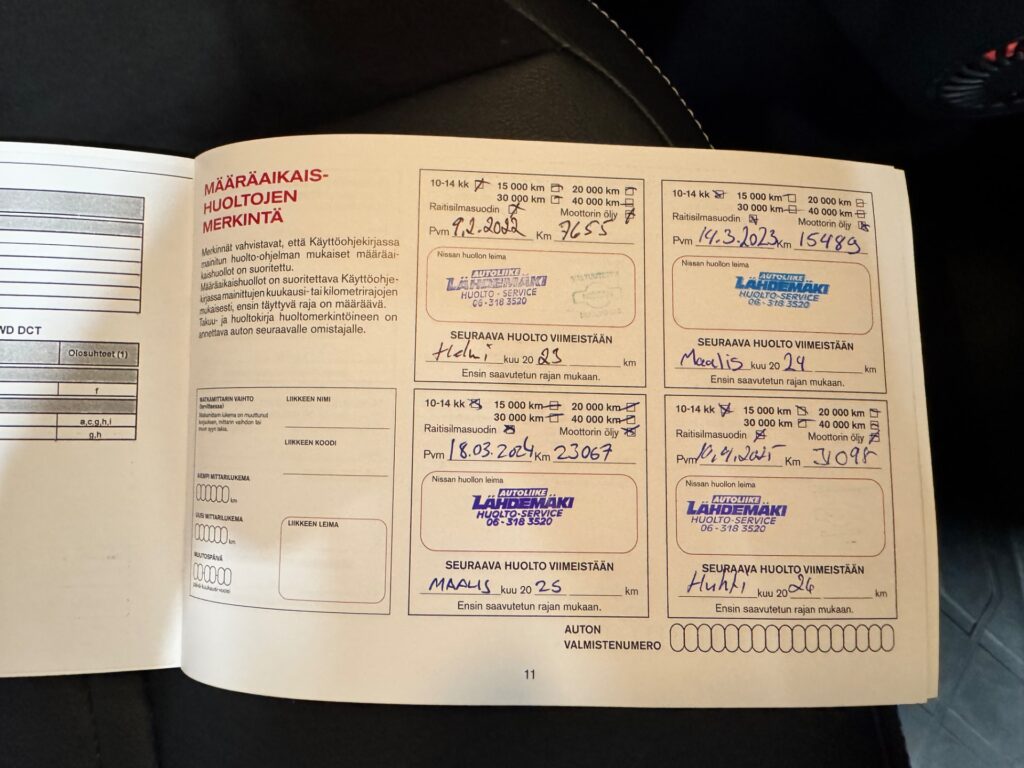 WD DCT
Olosuhteet (1)
f
a,c,g,h,i
g,h
MÄÄRÄAIKAIS-
HUOLTOJEN
MERKINTÄ
Merkinnät vahvistavat, että Käyttöohjekirjassa
mainitun huolto-ohjelman mukaiset määräai-
kaishuollot on suoritettu.
Määräaikaishuollot on suoritettava Käyttöohje-
kirjassa mainittujen kuukausi- tai kilometrirajojen
mukaisesti, ensin täyttyvä raja on määräävä.
Takuu- ja huoltokirja huoltomerkintöineen on
annettava auton seuraavalle omistajalle.
MATKAMITTARIN VAIHTO
(tarvittaessa)
Matkamittarin lukema on muuttunut
korjauksen, mittarin vaihdon tai
muun syyn takia.
LIIKKEEN NIMI
LIIKKEEN KOODI
AIEMPI MITTARILUKEMA
km
UUSI MITTARILUKEMA
km
MUUTOSPÄIVÄ
päivä kuukausi vuosi
LIIKKEEN LEIMA
10-14 kk 15 000 km 20 000 km
30 000 km 40 000 km
Raitisilmasuodin Moottorin öljy
Pvm 9.2.2022 Km 7655
Nissan huollon leima
AUTOLIIKE
LÄHDEMÄKI
HUOLTO-SERVICE
06-318 3520
SEURAAVA HUOLTO VIIMEISTÄÄN
Helmi kuu 20 23 km
Ensin saavutetun rajan mukaan.
10-14 kk 15 000 km 20 000 km
30 000 km 40 000 km
Raitisilmasuodin Moottorin öljy
Pvm 14.3.2023 Km 15489
Nissan huollon leima
AUTOLIIKE
LÄHDEMÄKI
HUOLTO-SERVICE
06-318 3520
SEURAAVA HUOLTO VIIMEISTÄÄN
Maalis kuu 20 24 km
Ensin saavutetun rajan mukaan.
10-14 kk 15 000 km 20 000 km
30 000 km 40 000 km
Raitisilmasuodin Moottorin öljy
Pvm 18.03.2024 Km 23067
Nissan huollon leima
AUTOLIIKE
LÄHDEMÄKI
HUOLTO-SERVICE
06-318 3520
SEURAAVA HUOLTO VIIMEISTÄÄN
MAALIS kuu 20 25 km
Ensin saavutetun rajan mukaan.
10-14 kk 15 000 km 20 000 km
30 000 km 40 000 km
Raitisilmasuodin Moottorin öljy
Pvm 10.4.2025 Km 31098
Nissan huollon leima
AUTOLIIKE
LÄHDEMÄKI
HUOLTO-SERVICE
06-318 3520
SEURAAVA HUOLTO VIIMEISTÄÄN
Huhti kuu 20 26 km
Ensin saavutetun rajan mukaan.
AUTON
VALMISTENUMERO
11